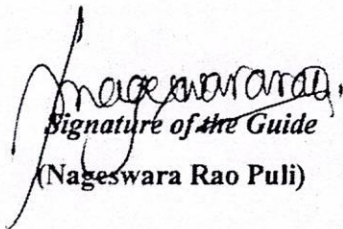 Nageswararao.
Signature of the Guide
(Nageswara Rao Puli)